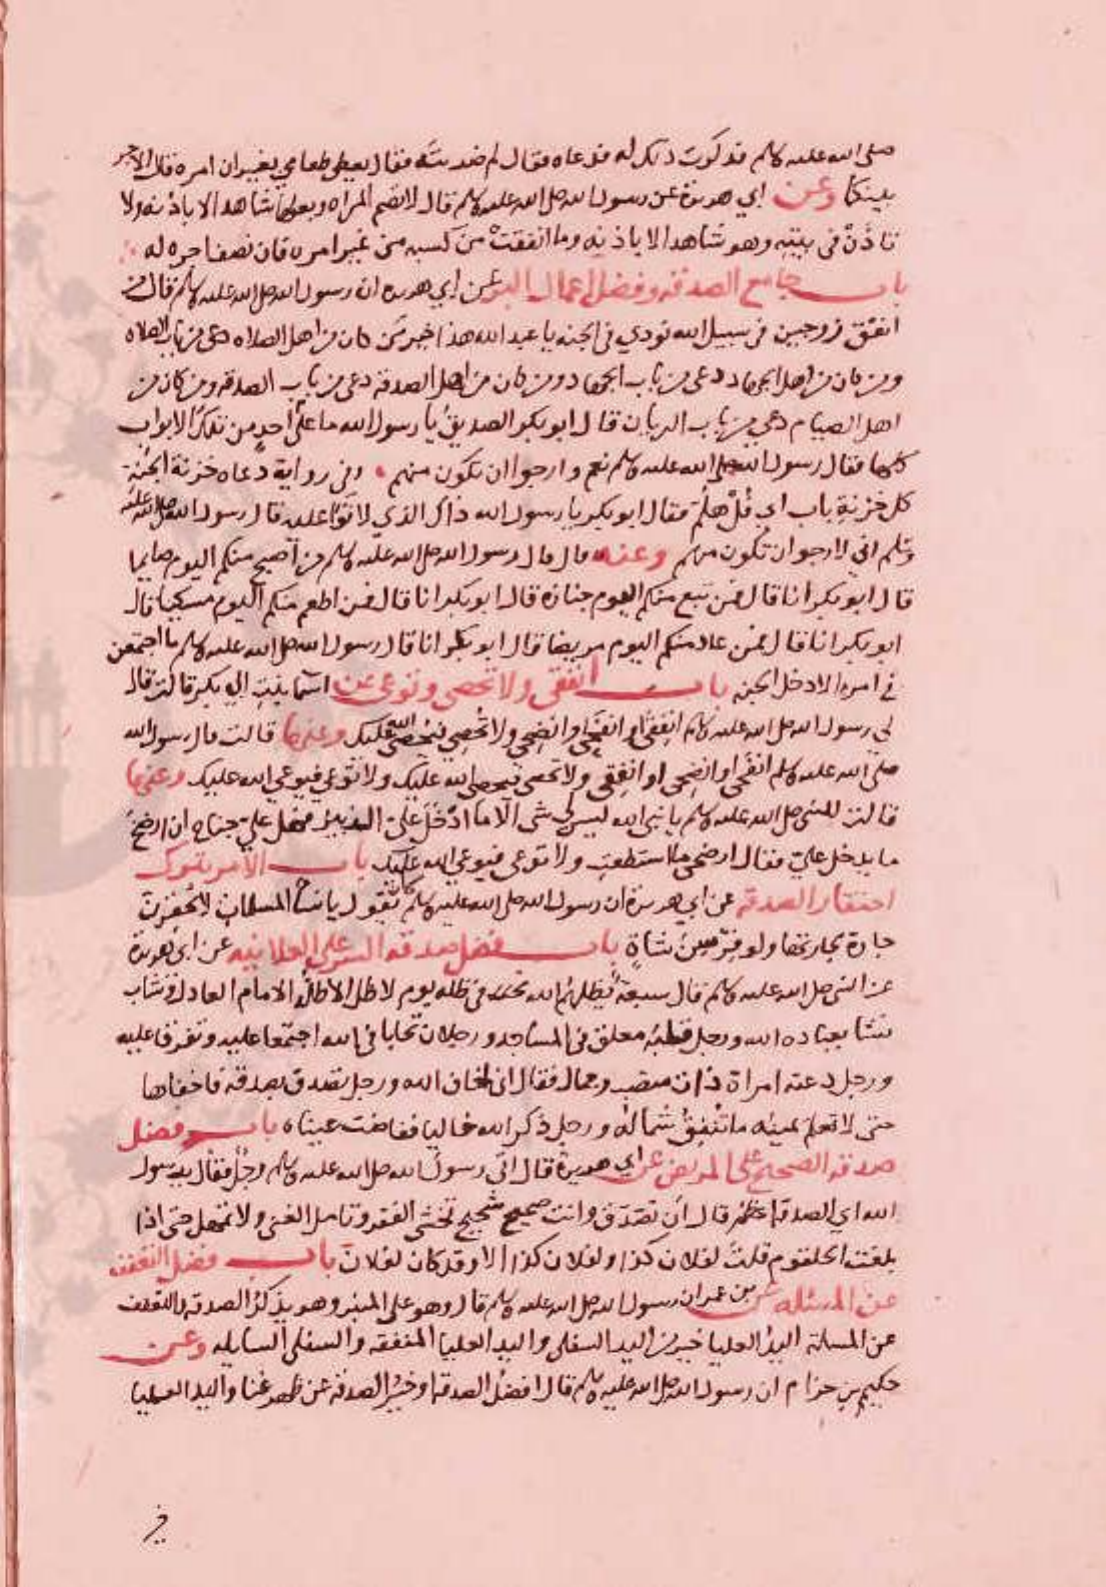 صلى الله عليه وسلم فذكرت ذلك له فدعاه فقال لم ضربته فقال يعطي طعامي بغير ان امره فقال الاجر
بينكما وعن ابي هريرة عن رسول الله صلى الله عليه وسلم قال لا تصم المراه وبعلها شاهد الا باذنه ولا
تاذن في بيته وهو شاهد الا باذنه وما انفقت من كسبه من غير امره فان نصف اجره له
باب جامع الصدقه وفضل اعمال البر عن ابي هريره ان رسول الله صلى الله عليه وسلم قال من
انفق زوجين في سبيل الله نودي في الجنه يا عبد الله هذا خير فمن كان من اهل الصلاه دعي من باب الصلاه
ومن كان من اهل الجهاد دعي من باب الجهاد ومن كان من اهل الصدقه دعي من باب الصدقه ومن كان من
اهل الصيام دعي من باب الريان قال ابو بكر الصديق يا رسول الله ما على احد من تلك الابواب
كلها فقال رسول الله صلى الله عليه وسلم نعم وارجوا ان تكون منهم وفي رواية دعاه خزنة الجنة
كل خزنة باب اي فل هلم فقال ابو بكر يا رسول الله ذاك الذي لا توا عليه قال رسول الله صلى الله عليه
وسلم اني لارجو ان تكون منهم وعنه قال قال رسول الله صلى الله عليه وسلم من اصبح منكم اليوم صايما
قال ابو بكر انا قال فمن تبع منكم اليوم جنازة قال ابو بكر انا قال فمن اطعم منكم اليوم مسكينا قال
ابو بكر انا قال فمن عاد منكم اليوم مريضا قال ابو بكر انا قال رسول الله صلى الله عليه وسلم ما اجتمعن
في امرء الا دخل الجنه باب انفقي ولا تحصي وتوعي عن اسما بنت ابي بكر قالت قال
لي رسول الله صلى الله عليه وسلم انفقي او انفحي او انضحي ولا تحصي فيحصي الله عليك وعنها قالت قال رسول الله
صلى الله عليه وسلم انفحي او انضحي او انفقي ولا تحصي فيحصي الله عليك ولا توعي فيوعي الله عليك وعنها
قالت للنبي صلى الله عليه وسلم يا نبي الله ليس لي شي الا ما ادخل علي الزبير فهل علي جناح ان ارضخ
ما يدخل علي فقال ارضخي ما استطعت ولا توعي فيوعي الله عليك باب الامر بترك
احتقار الصدقه عن ابي هريرة ان رسول الله صلى الله عليه وسلم كان يقول يا نسا المسلمات لا تحقرن
جارة لجارتها ولو فرسن شاة باب فضل صدقه السر على العلانيه عن ابي هريرة
عن النبي صلى الله عليه وسلم قال سبعة يظلهم الله تحت ظله يوم لا ظل الا ظله الامام العادل وشاب
نشا بعباده الله ورجل قلبه معلق في المساجد ورجلان تحابا في الله اجتمعا عليه وتفرقا عليه
ورجل دعته امراة ذات منصب وجمال فقال اني اخاف الله ورجل تصدق بصدقه فاخفاها
حتى لا تعلم يمينه ما تنفق شماله ورجل ذكر الله خاليا ففاضت عيناه باب فضل
صدقه الصحيح على المريض عن ابي هريرة قال اتى رسول الله صلى الله عليه وسلم رجل فقال يا رسول
الله اي الصدقة اعظم قال ان تصدق وانت صحيح شحيح تخشى الفقر وتامل الغنى ولا تمهل حتى اذا
بلغت الحلقوم قلت لفلان كذا ولفلان كذا الا وقد كان لفلان باب فضل التعفف
عن المسئله عن رسول الله صلى الله عليه وسلم قال وهو على المنبر وهو يذكر الصدقه والتعفف
عن المسلة اليد العليا خير من اليد السفلى واليد العليا المنفقه والسفلى السايله وعن
حكيم بن حزام ان رسول الله صلى الله عليه وسلم قال افضل الصدقه او خير الصدقة عن ظهر غنا واليد العليا